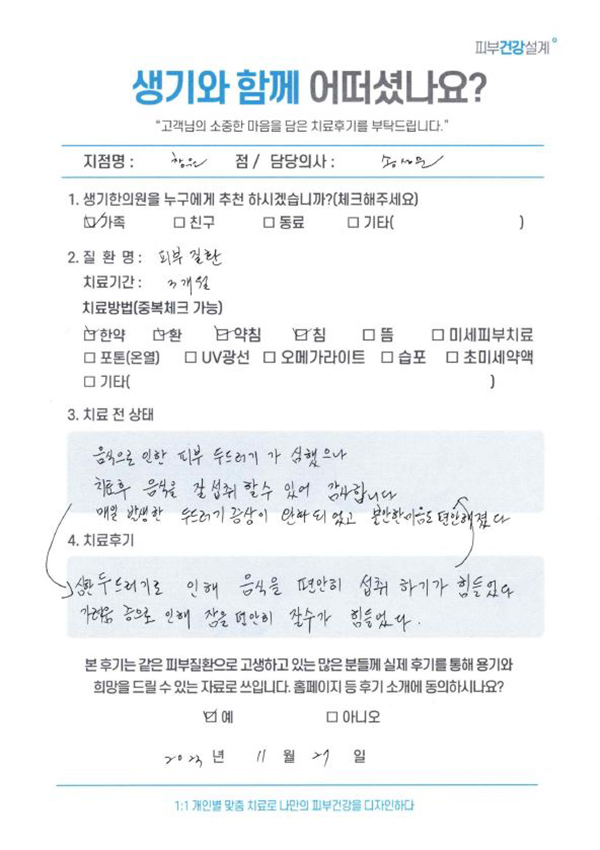 피부건강설계
생기와 함께 어떠셨나요?
"고객님의 소중한 마음을 담은 치료후기를 부탁드립니다."
지점명 : 창원 점 / 담당의사 :
1. 생기한의원을 누구에게 추천 하시겠습니까?(체크해주세요)
☑가족 □ 친구 □ 동료 □ 기타( )
2. 질 환 명 : 피부 질환
치료기간 : 3개월
치료방법(중복체크 가능)
☑한약 ☑환 ☑약침 ☑침 □ 뜸 □ 미세피부치료
□ 포톤(온열) □ UV광선 □ 오메가라이트 □ 습포 □ 초미세약액
□ 기타( )
3. 치료 전 상태
음식으로 인한 피부 두드러기 가 심했으나
치료후 음식을 잘 섭취 할수 있어 감사합니다
매일 발생한 두드러기 증상이 완화 되었고 불안한 마음도 편안해졌다
4. 치료후기
심한 두드러기로 인해 음식을 편안히 섭취 하기가 힘들었다
가려움 증으로 인해 잠을 편안히 잘수가 힘들었다.
본 후기는 같은 피부질환으로 고생하고 있는 많은 분들께 실제 후기를 통해 용기와
희망을 드릴 수 있는 자료로 쓰입니다. 홈페이지 등 후기 소개에 동의하시나요?
☑ 예 □ 아니오
2023 년 11 월 27 일
1:1 개인별 맞춤 치료로 나만의 피부건강을 디자인하다